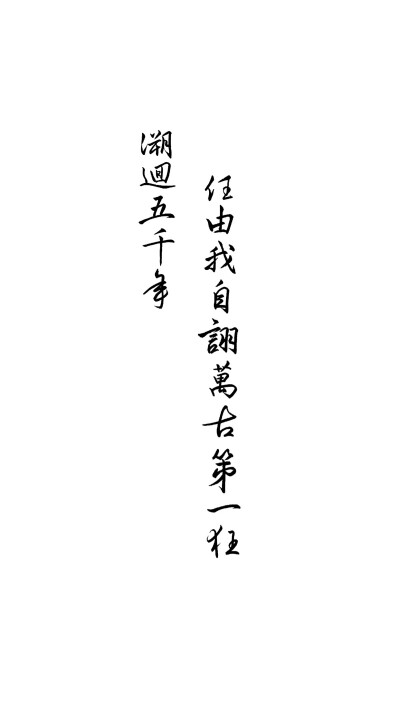 溯迴五千年
任由我自詡萬古第一狂